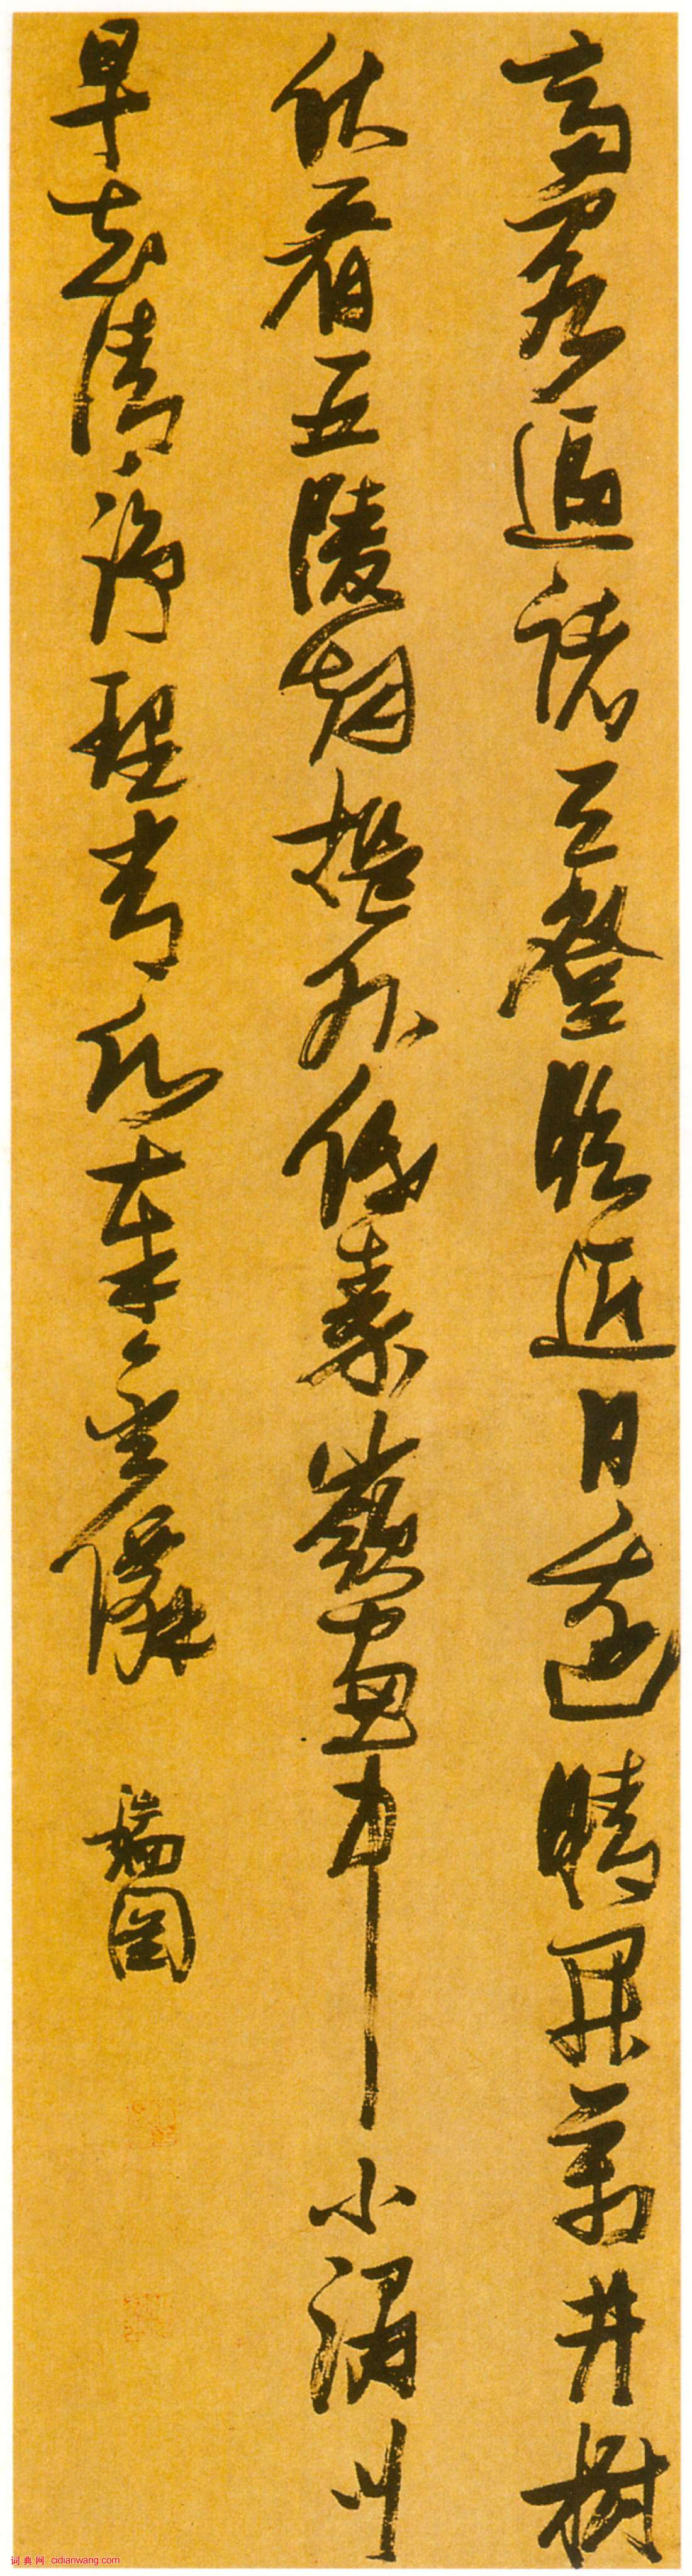 高閣逼諸天登臨近日邊晴開萬井樹
伏看五陵烟檻外低秦嶺窗中小渭川
早知清淨理常願奉金僊
瑞圖
词典网 cidianwang.com